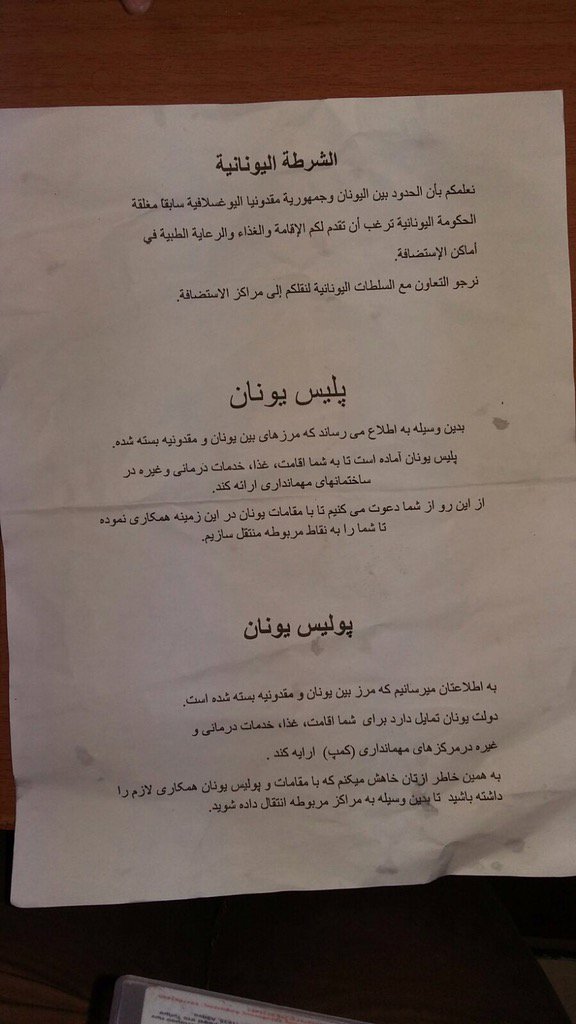 الشرطة اليونانية
نعلمكم بأن الحدود بين اليونان وجمهورية مقدونيا اليوغسلافية سابقا مغلقة
الحكومة اليونانية ترغب أن تقدم لكم الإقامة والغذاء والرعاية الطبية في
أماكن الإستضافة.
نرجو التعاون مع السلطات اليونانية لنقلكم إلى مراكز الاستضافة.
پلیس یونان
بدین وسیله به اطلاع می رساند که مرزهای بین یونان و مقدونیه بسته شده.
پلیس یونان آماده است تا به شما اقامت، غذا، خدمات درمانی وغیره در
ساختمانهای مهمانداری ارائه کند.
از این رو از شما دعوت می کنیم تا با مقامات یونان در این زمینه همکاری نموده
تا شما را به نقاط مربوطه منتقل سازیم.
پولیس یونان
به اطلاعتان میرسانیم که مرز بین یونان و مقدونیه بسته شده است.
دولت یونان تمایل دارد برای شما اقامت، غذا، خدمات درمانی و
غیره درمرکزهای مهمانداری (کمپ) ارایه کند .
به همین خاطر ازتان خاهش میکنم که با مقامات و پولیس یونان همکاری لازم را
داشته باشید تا بدین وسیله به مراکز مربوطه انتقال داده شوید.